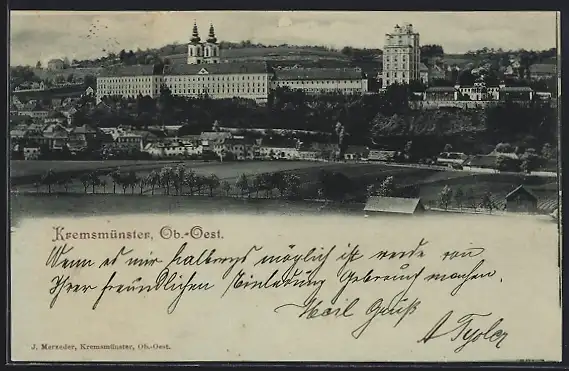 Kremsmünster, Ob.-Oest.
Wenn es mir halbwegs möglich ist werde von
Ihrer freundlichen Einladung Gebrauch machen.
Gruß
J. Merzeder, Kremsmünster, Ob.-Oest.